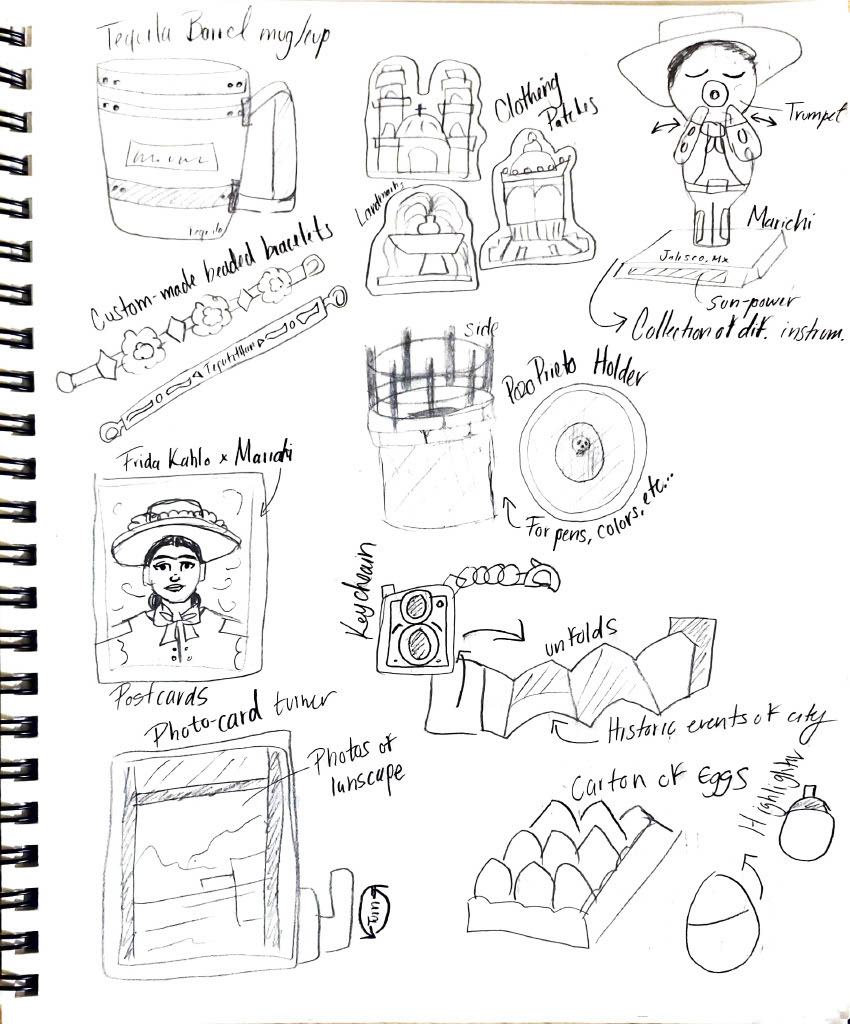 Tequila Barrel mug/cup
tequila
Clothing
Patches
Landmarks
Trumpet
Marichi
Jalisco, Mx
sun-power
Collection of dif. instrum.
Custom-made beaded bracelets
side
Pozo Prieto Holder
For pens, colors, etc...
Frida Kahlo x Mariachi
Postcards
Keychain
unfolds
Historic events of city
Photo-card turner
Photos of
lanscape
turn
Carton of Eggs
Highlighter